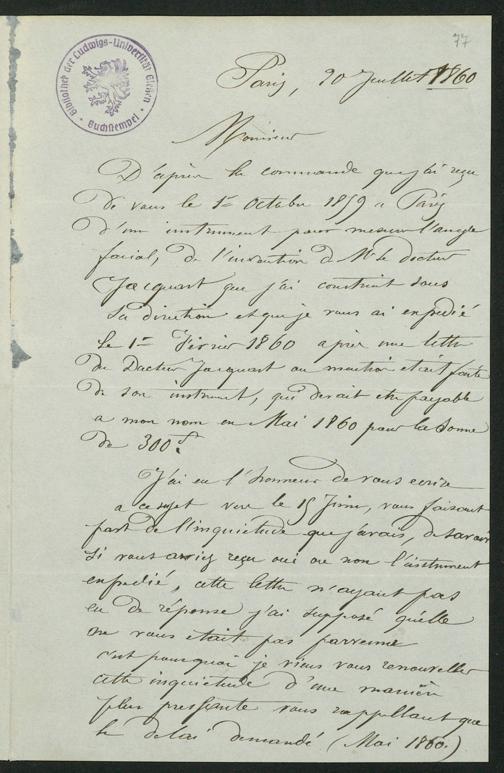 77
Bibliothek der Ludwigs-Universität Gießen
Buchstempel
Paris, 20 Juillet 1860
Monsieur
D'après la commande que j'ai reçu
de vous le 1er Octobre 1859 a Paris
d'un instrument pour mesurer l'angle
facial, de l'invention de Mr le docteur
Jacquart que j'ai construit sous
sa direction et que je vous ai expédié
le 1er Février 1860 après une lettre
du Docteur Jacquart ou mention était faite
de son instrument, qui devait être payable
a mon nom en Mai 1860 pour la somme
de 300 f.
J'ai eu l'honneur de vous ecrire
a ce sujet vers le 15 Juin, vous faisant
part de l'inquietude que j'avais, de savoir
si vous aviez reçu oui ou non l'instrument
expédié, cette lettre n'ayant pas
eu de réponse j'ai supposé qu'elle
ne vous etait pas parvenue
c'est pourquoi je viens vous renouveller
cette inquietude d'une manière
plus pressante vous rappellant que
le delai demandé (Mai 1860.)